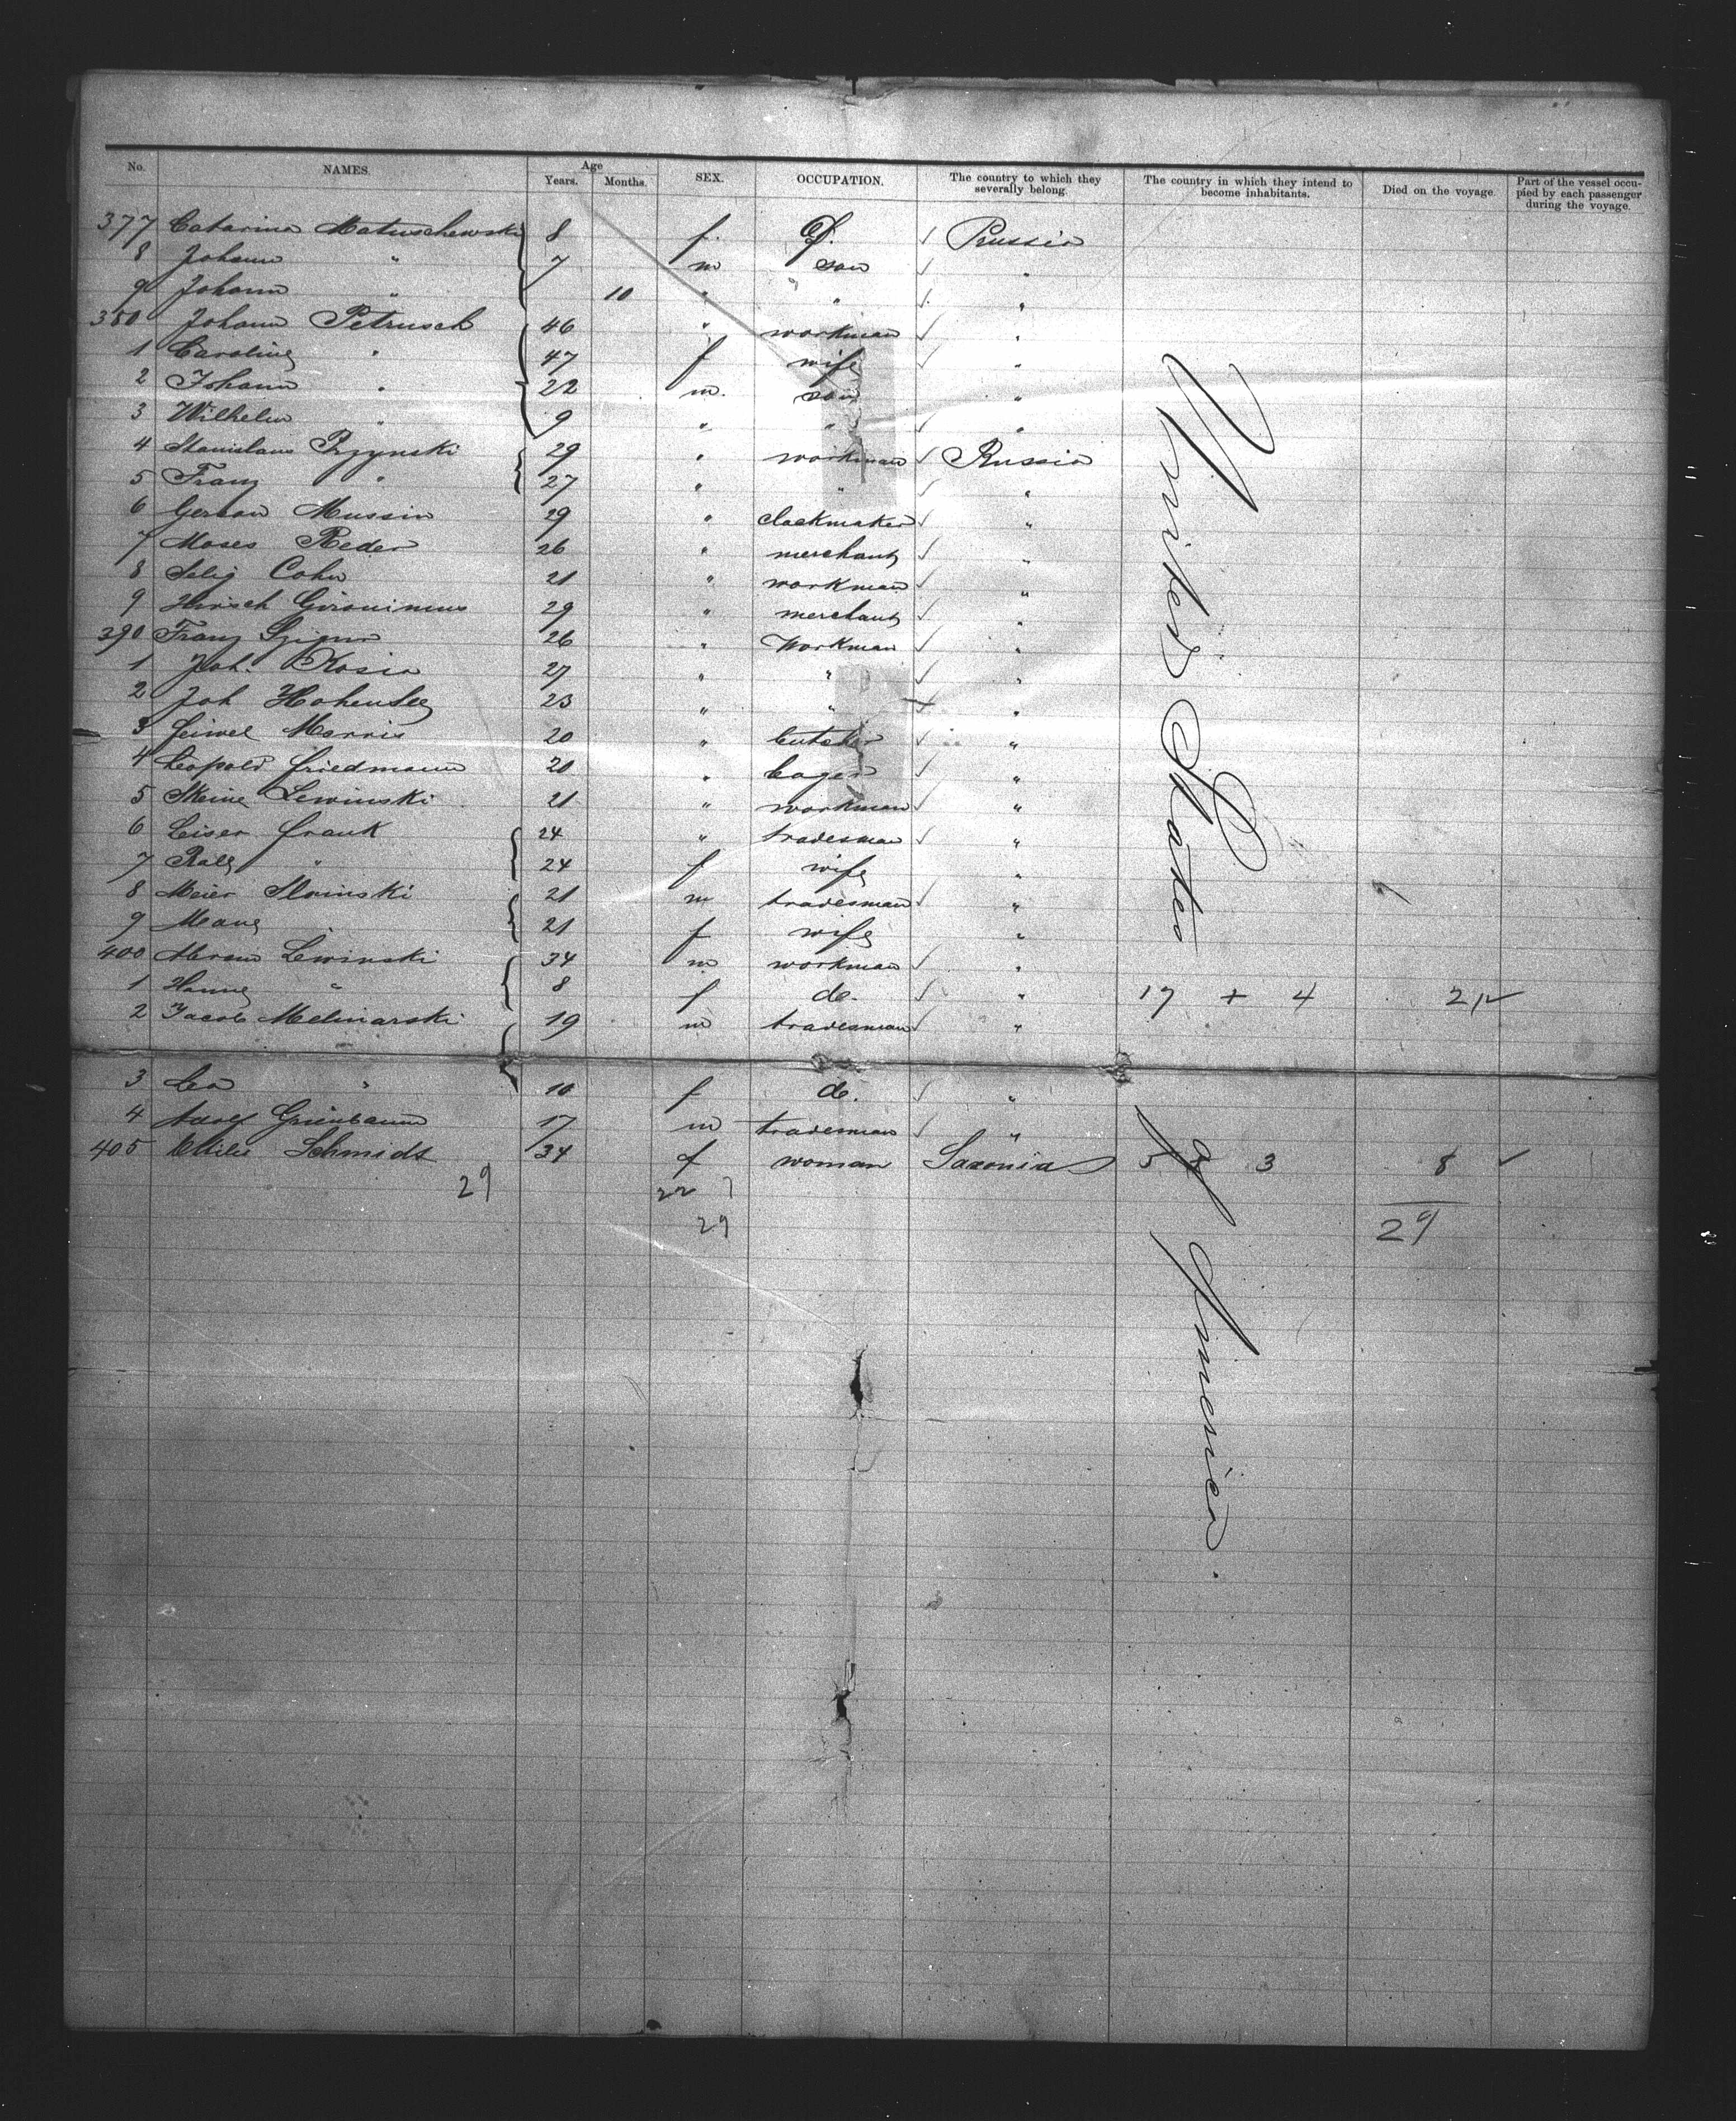 No. NAMES. Age Years. Months. SEX. OCCUPATION. The country to which they severally belong. The country in which they intend to become inhabitants. Died on the voyage. Part of the vessel occupied by each passenger during the voyage.
377 Catarina Matuschewski 8 f. D. ✓ Prussia
8 Johann " 7 m son ✓ "
9 Johann " 10 " " ✓ "
380 Johann Petrusch 46 " workman ✓ "
1 Caroline " 47 f wife ✓ "
2 Johann " 22 m. son "
3 Wilhelm " 9 " " ✓ "
4 Stanislaus Przynski 29 " workman ✓ Russia
5 Franz " 27 " " ✓ "
6 Gerson Mussin 29 " clockmaker ✓ "
7 Moses Reder 26 " merchant ✓ "
8 Selig Cohn 21 " workman ✓ "
9 Hirsch 29 " merchant ✓ "
390 Franz 26 " Workman ✓ "
1 Joh. Kosia 27 " " ✓ "
2 Joh Hohensee 23 " " "
3 Morris 20 " butcher ✓ "
4 Leopold Friedmann 20 " ✓ "
5 Lewinski 21 " workman ✓ "
6 Leiser Frank 24 " tradesman ✓ "
7 " 24 f wife "
8 Meier Slominski 21 m tradesman ✓ "
9 21 f wife "
400 Abram Lewinski 34 m workman ✓ "
1 Hanne " 8 f do. ✓ " 17 + 4 21 ✓
2 Jacob Melinarski 19 m tradesman "
3 Lea " 10 f do. ✓ "
4 Adolf Grünbaum 17 m tradesman ✓ "
405 Ottilie Schmidt 34 f woman Saxonia 5 3 8 ✓
29 22 7 29
29
United States of America.